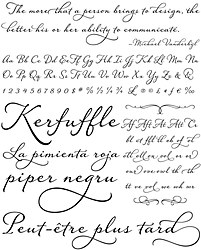 The more that a person brings to design, the
better his or her ability to communicate.
—Michael Vanderbyl
Aa Bb Cc Dd Ee Ff Gg Hh Ii Jj Kk Ll Mm
Nn Oo Pp Qq Rr Ss Tt Uu Vv Ww Xx Yy Zz &
1 2 3 4 5 6 7 8 9 0
Kerfuffle
La pimienta roja
piper negru
Peut-être plus tard